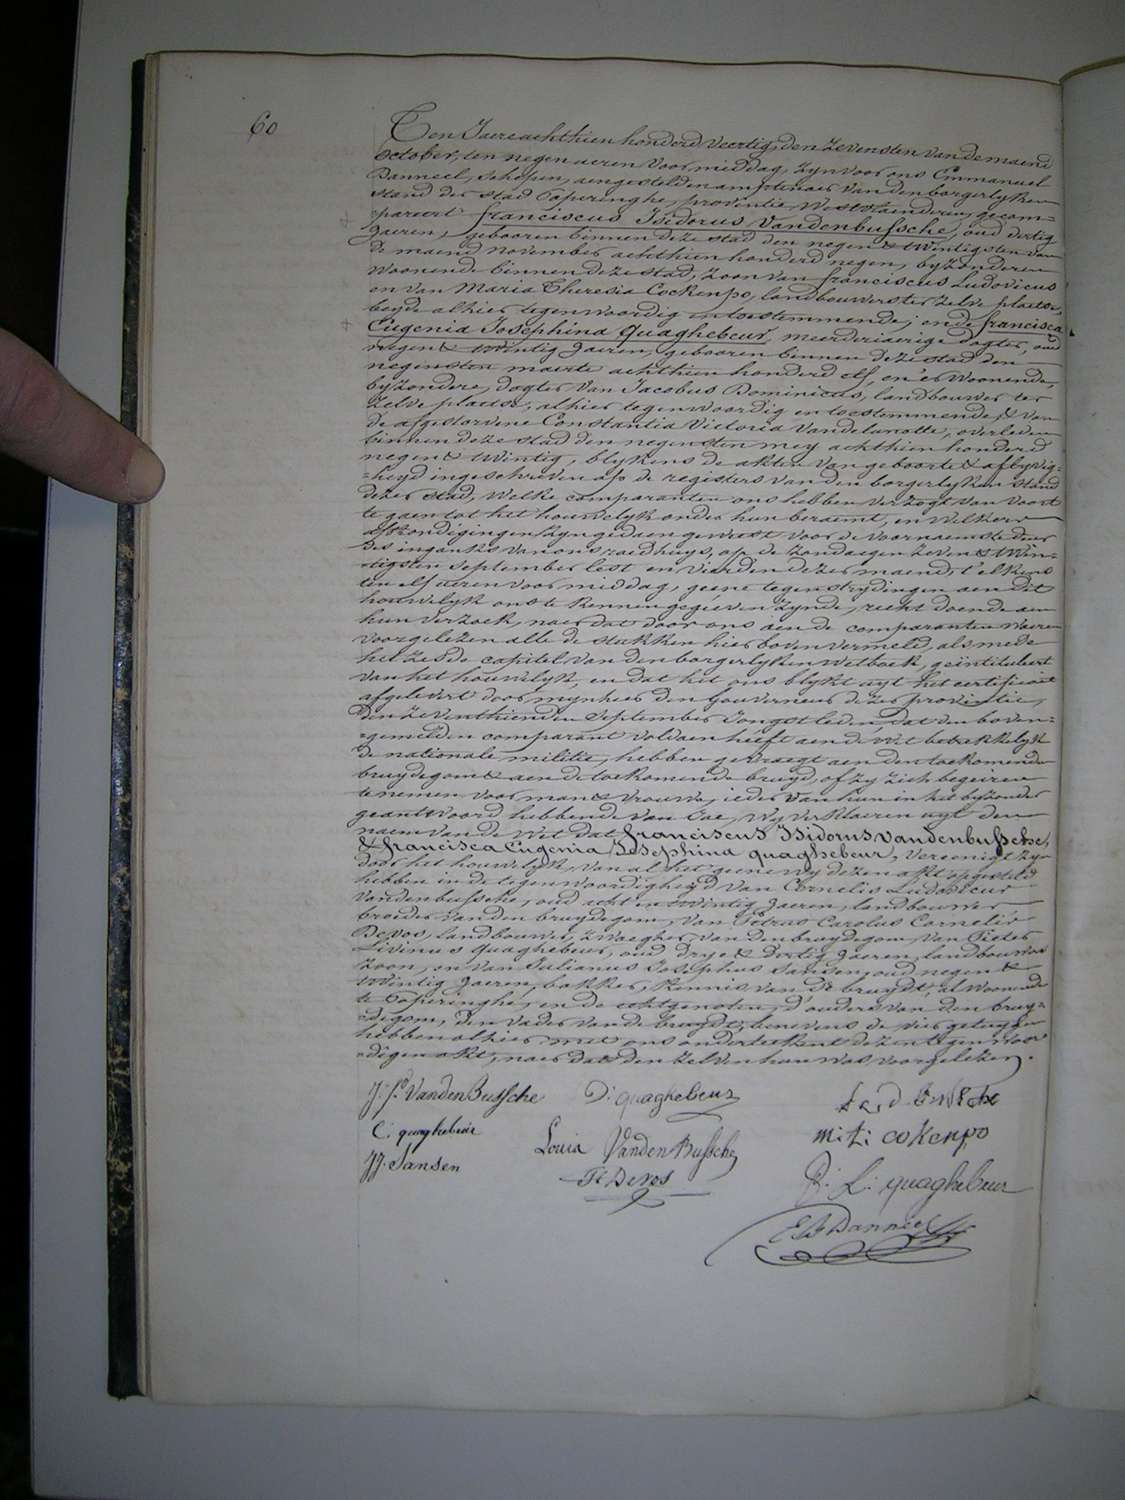 60
Ten Jaere achthien honderd veertig, den zevensten van de maend
october, ten negen aeren voor middag, zyn voor ons Emmanuel
Danneel, schepen, aengestelden amptenaer van den borgerlyken
stand der stad Poperinghe, provintie Westvlaenderen, gecom=
=pareert franciscus Isidorus Vandenbussche, oud dertig
Jaeren, gebooren binnen deze stad den negen & twintigsten van
de maend november achthien honderd negen, byzonderen
woonende binnen deze stad, zoon van franciscus Ludovicus
en van Maria Theresia Cockenpo, landbouwers ter zelve plaetse,
beyde alhier tegenwoordig en toestemmende; ende francisca
Eugenia Josephina Quaghebeur, meerderjaerige dogter, oud
negen & twintig Jaeren, gebooren binnen deze stad den
negensten maerte achthien honderd elf, en er woonende,
byzondere, dogter van Jacobus Dominicus, landbouwer ter
zelve plaetse, alhier tegenwoordig en toestemmende, & van
de afgestorvene Constantia Victoria Vandelanotte, overleden
binnen deze stad den negensten mey achthien honderd
negen & twintig, blykens de akten van geboorte & aflyvig=
=heyd ingeschreven op de registers van den borgerlyken stand
dezer stad, welke comparanten ons hebben verzogt van voort
te gaen tot het houwelyk onder hun beraemt, en welkers
afkondigingen zyn gedaen geweest voor de voornaemste deur
des inganks van ons raedhuys, op de zondaegen zeven & twin=
=tigsten september lest en vierden dezer maend, t'elkens
ten elf aeren voor middag, geene tegenstrydingen aen dit
houwelyk ons te kennen gegeven zynde, recht doende aen
hun verzoek, naer dat door ons aen de comparanten waeren
voorgelezen alle de stukken hier boven vermeld, als mede
het zesde capitel van den borgerlyken Wetboek, geïntituleert
van het houwelyk, en dat het ons blykt uyt het certificaet
afgelevert door mynheer den Gouverneur dezer provintie,
den zeventhienden september Jongstleden, dat den boven=
=gemelden comparant voldaen heeft aen de wet betrekkelyk
de nationale militie, hebben gevraegt aen den toekomende
bruydegom & aen de toekomende bruyd, of zy zich begeiren
te nemen voor man & vrouwe, ieder van hun in het byzonder
geantwoord hebbende van Jae, Wy verklaeren uyt den
naem van de Wet dat franciscus Isidorus vandenbussche,
& francisca Eugenia Josephina quaghebeur, vereenigt zyn
door het houwelyk, van al het geene wy dezen akt opgesteld
hebben in de tegenwoordigheyd van Cornelis Ludovicus
Vandenbussche, oud acht en twintig Jaeren, landbouwer
broeder van den bruydegom, van Petrus Carolus Cornelis
Devos, landbouwer, zwaegher van den bruydegom, van Pieter
Livinus Quaghebeur, oud drye & dertig Jaeren, landbouwers
zoon, en van Julianus Josephus Sansen, oud negen &
twintig Jaeren, bakker, kennis van de bruydt, al woonende
te Poperinghe, en de echtgenoten, d'ouders van den bruy=
=degom, den vader van de bruydt, benevens de vier getuygen
hebben alhier met ons onderteekent dezen tegenwoor=
=digen akt, naer dat den zelven hun was voorgelezen.
J: f: VandenBussche D: quaghebeur
C: quaghebeur Louis VandenBussche m: t: cokenpo
JJ: Sansen P C Devos P: L: quaghebeur
E B Danneel